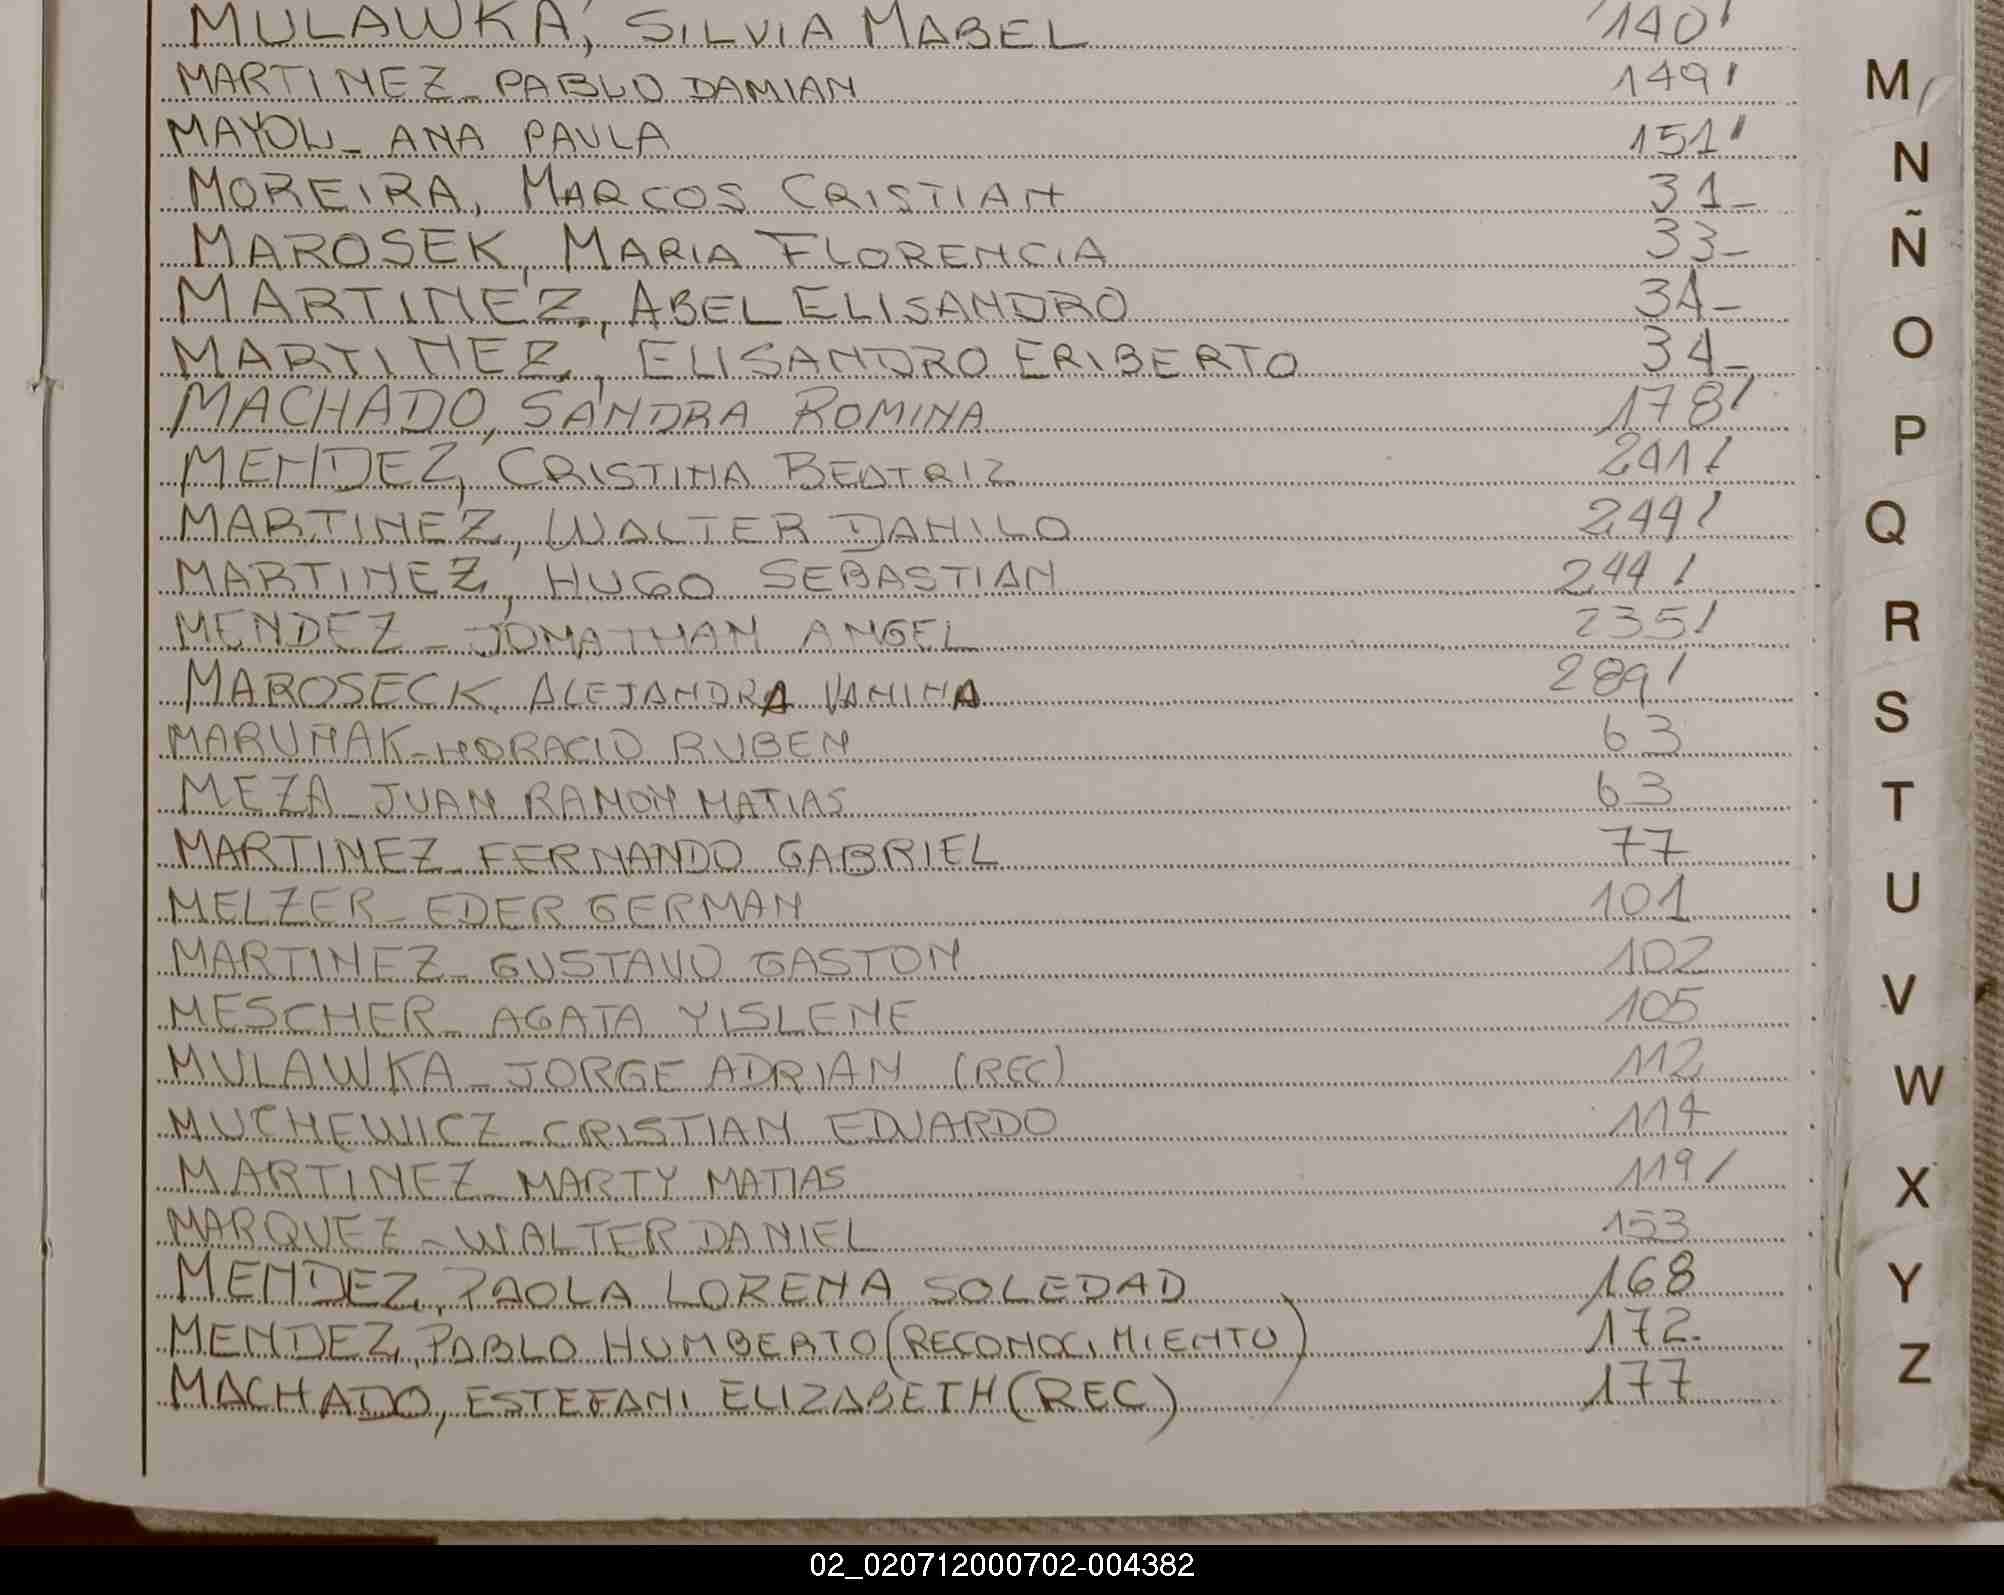 MULAWKA, SILVIA MABEL 140'
MARTINEZ - PABLO DAMIAN 149'
MAYOL - ANA PAULA 151'
MOREIRA, MARCOS CRISTIAN 31-
MAROSEK, MARIA FLORENCIA 33-
MARTINEZ, ABEL ELISANDRO 34-
MARTINEZ, ELISANDRO ERIBERTO 34-
MACHADO, SANDRA ROMINA 178'
MENDEZ, CRISTINA BEATRIZ 241'
MARTINEZ, WALTER DANILO 244'
MARTINEZ, HUGO SEBASTIAN 244'
MENDEZ - JONATHAN ANGEL 235'
MAROSECK, ALEJANDRA VANINA 289'
MARUNAK - HORACIO RUBEN 63
MEZA - JUAN RAMON MATIAS 63
MARTINEZ - FERNANDO GABRIEL 77
MELZER - EDER GERMAN 101
MARTINEZ - GUSTAVO GASTON 102
MESCHER - AGATA YISLENE 105
MULAWKA - JORGE ADRIAN (REC) 112
MUCHEWICZ - CRISTIAN EDUARDO
MARTINEZ - MARTY MATIAS 119/
MARQUEZ - WALTER DANIEL 153
MENDEZ, PAOLA LORENA SOLEDAD 168
MENDEZ, PABLO HUMBERTO (RECONOCIMIENTO) 172.
MACHADO, ESTEFANI ELIZABETH (REC) 177
M
N
Ñ
O
P
Q
R
S
T
U
V
W
X
Y
Z
02_020712000702-004382